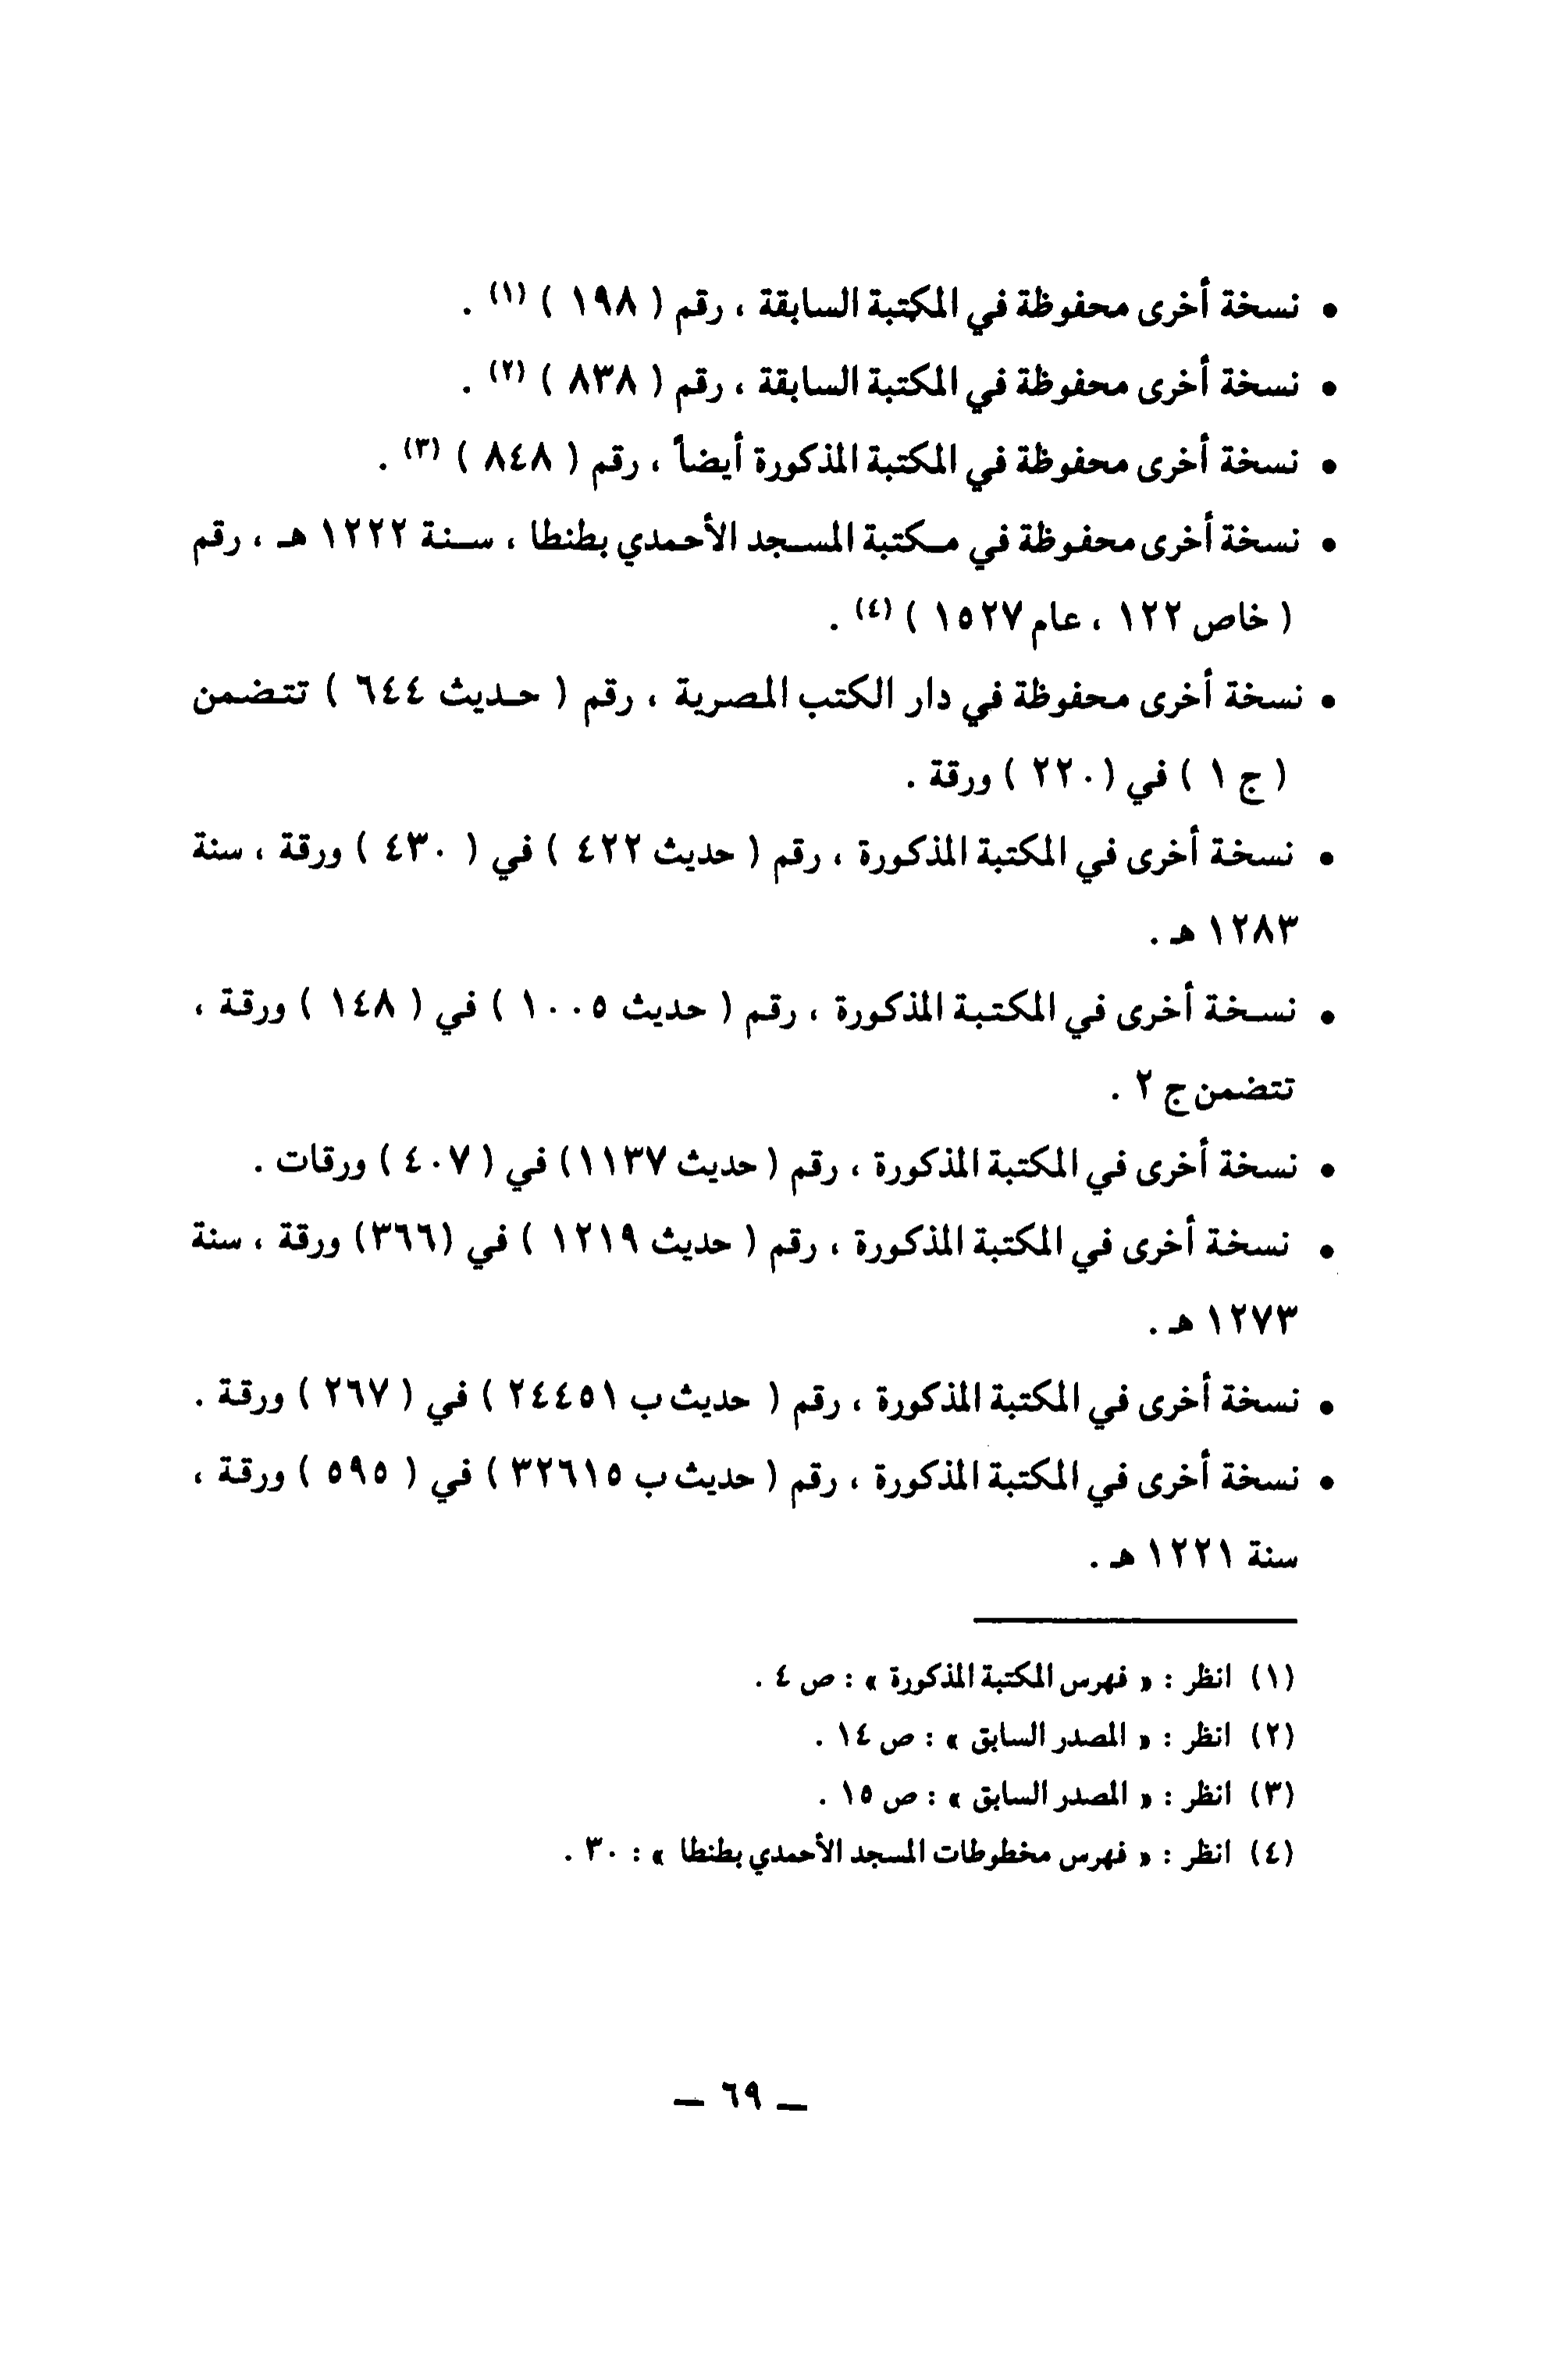 • نسخة أخرى محفوظة في المكتبة السابقة ، رقم ( ١٩٨ ) (١) .
• نسخة أخرى محفوظة في المكتبة السابقة ، رقم ( ٨٣٨ ) (٢) .
• نسخة أخرى محفوظة في المكتبة المذكورة أيضاً ، رقم ( ٨٤٨ ) (٣) .
• نسخة أخرى محفوظة في مكتبة المسجد الأحمدي بطنطا ، سنة ١٢٢٢ هـ ، رقم
( خاص ١٢٢ ، عام ١٥٢٧ ) (٤) .
• نسخة أخرى محفوظة في دار الكتب المصرية ، رقم ( حديث ٦٤٤ ) تتضمن
( ج ١ ) في ( ٢٢٠ ) ورقة .
• نسخة أخرى في المكتبة المذكورة ، رقم ( حديث ٤٢٢ ) في ( ٤٣٠ ) ورقة ، سنة
١٢٨٣ هـ .
• نسخة أخرى في المكتبة المذكورة ، رقم ( حديث ١٠٠٥ ) في ( ١٤٨ ) ورقة ،
تتضمن ج ٢ .
• نسخة أخرى في المكتبة المذكورة ، رقم ( حديث ١١٣٧) في ( ٤٠٧ ) ورقات .
• نسخة أخرى في المكتبة المذكورة ، رقم ( حديث ١٢١٩ ) في (٣٦٦) ورقة ، سنة
١٢٧٣ هـ .
• نسخة أخرى في المكتبة المذكورة ، رقم ( حديث ب ٢٤٤٥١ ) في ( ٢٦٧ ) ورقة .
• نسخة أخرى في المكتبة المذكورة ، رقم ( حديث ب ٣٢٦١٥ ) في ( ٥٩٥ ) ورقة ،
سنة ١٢٢١ هـ .
(١) انظر : « فهرس المكتبة المذكورة » : ص ٤ .
(٢) انظر : « المصدر السابق » : ص ١٤ .
(٣) انظر : « المصدر السابق » : ص ١٥ .
(٤) انظر : « فهرس مخطوطات المسجد الأحمدي بطنطا » : ٣٠ .
ــ ٦٩ ــ